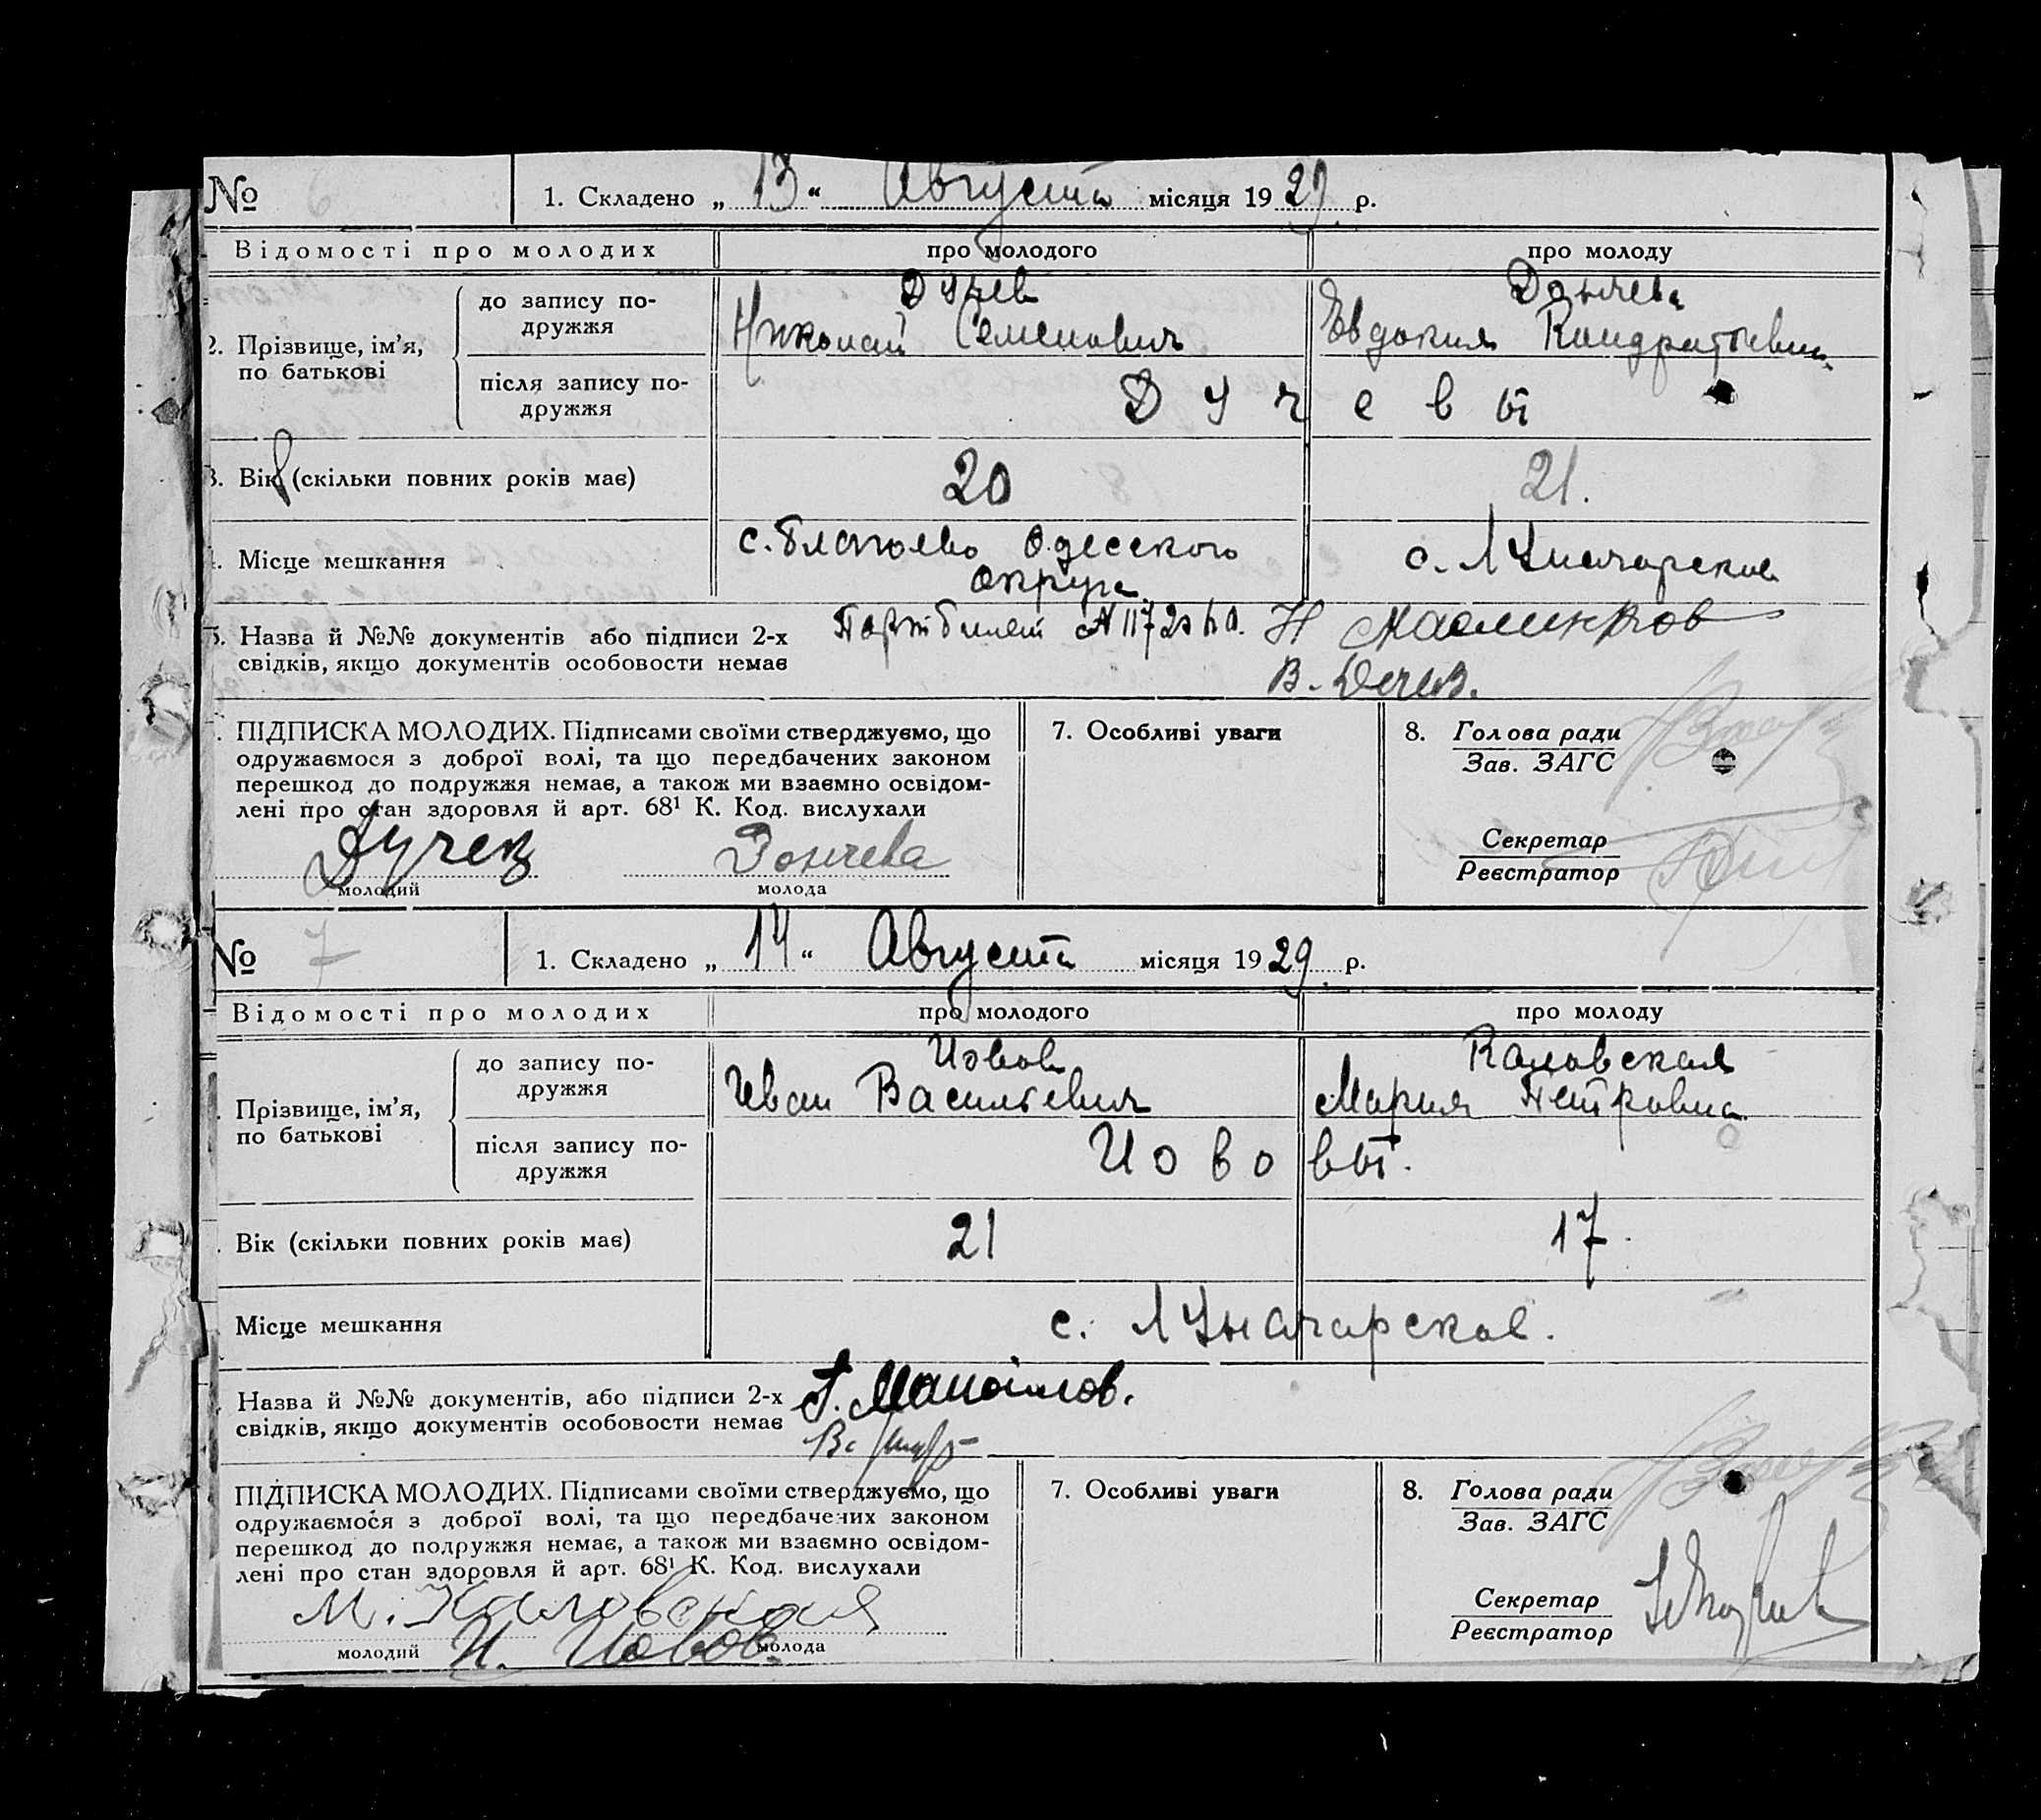 № 1. Складено „ 13 “ Августа місяця 1929 р.
Відомості про молодих про молодого про молоду
2. Прізвище, ім’я, по батькові
до запису по-
дружжя
Дучев
Николай Семенович
Дончева
Евдокия Кондратьевна
після запису по-
дружжя
Дучевы
3. Вік (скільки повних років має) 20 21.
Місце мешкання
с. Благоево Одесского
округа.
с. Луначарское
5. Назва й №№ документів або підписи 2-х
свідків, якщо документів особовости немає
Партбилет № Н
В. Дечев.
ПІДПИСКА МОЛОДИХ. Підписами своїми стверджуємо, що
одружаємося з доброї волі, та що передбачених законом
перешкод до подружжя немає, а також ми взаємно освідом-
лені про стан здоровля й арт. 68¹ К. Код. вислухали
Дучев Дончева
молодий молода
7. Особливі уваги
8. Голова ради
Зав. ЗАГС
Секретар
Реєстратор
№ 7 1. Складено „ 14 “ Августа місяця 1929 р.
Відомості про молодих про молодого про молоду
Прізвище, ім’я,
по батькові
до запису по-
дружжя
Иовов
Иван Васильевич
Каловская
Мария Петровна
після запису по-
дружжя
Иововы.
Вік (скільки повних років має) 21 17.
Місце мешкання с. Луначарское.
Назва й №№ документів, або підписи 2-х
свідків, якщо документів особовости немає
ПІДПИСКА МОЛОДИХ. Підписами своїми стверджуємо, що
одружаємося з доброї волі, та що передбачених законом
перешкод до подружжя немає, а також ми взаємно освідом-
лені про стан здоровля й арт. 68¹ К. Код. вислухали
М. Каловская
И. Иовов.
молодий молода
7. Особливі уваги
8. Голова ради
Зав. ЗАГС
Секретар
Реєстратор